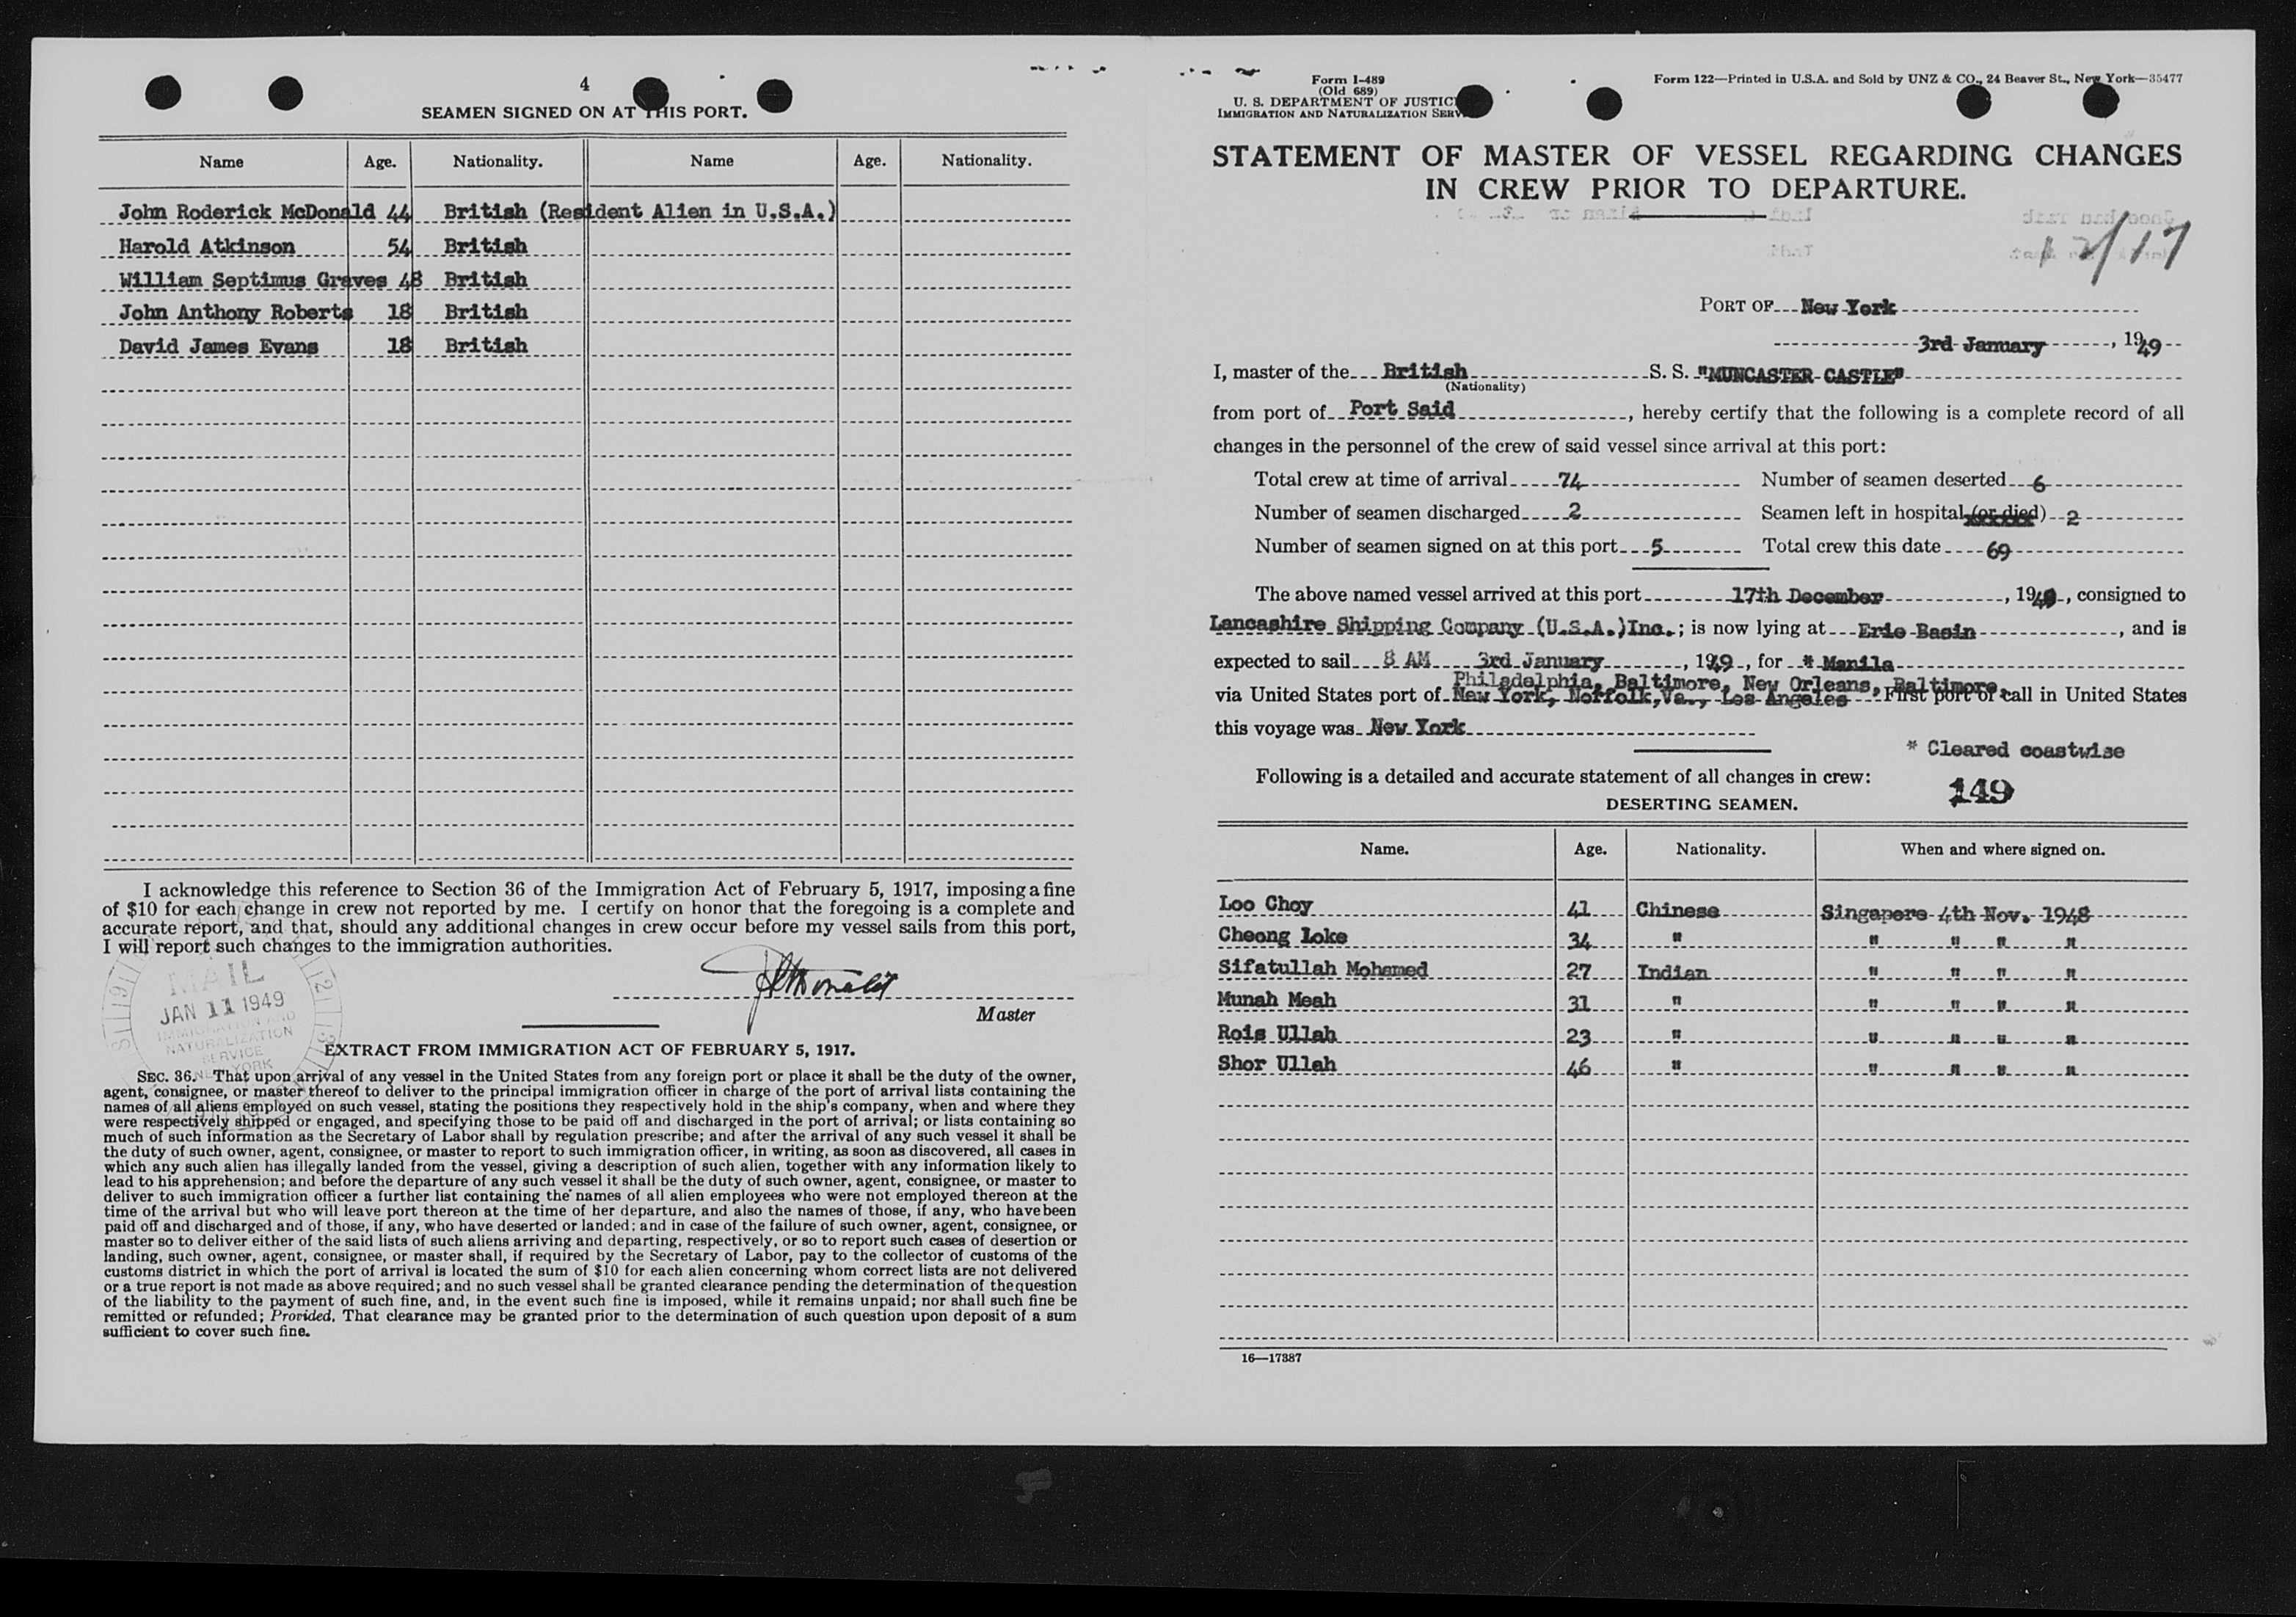 4
SEAMEN SIGNED ON AT THIS PORT.
Name Age. Nationality. Name Age. Nationality.
John Roderick McDonald 44 British (Resident Alien in U.S.A.)
Harold Atkinson 54 British
William Septimus Graves 48 British
John Anthony Roberts 18 British
David James Evans 18 British
I acknowledge this reference to Section 36 of the Immigration Act of February 5, 1917, imposing a fine
of $10 for each change in crew not reported by me. I certify on honor that the foregoing is a complete and
accurate report, and that, should any additional changes in crew occur before my vessel sails from this port,
I will report such changes to the immigration authorities.
Master
MAIL
JAN 11 1949
IMMIGRATION AND
NATURALIZATION
SERVICE
NEW YORK
EXTRACT FROM IMMIGRATION ACT OF FEBRUARY 5, 1917.
SEC. 36. That upon arrival of any vessel in the United States from any foreign port or place it shall be the duty of the owner,
agent, consignee, or master thereof to deliver to the principal immigration officer in charge of the port of arrival lists containing the
names of all aliens employed on such vessel, stating the positions they respectively hold in the ship's company, when and where they
were respectively shipped or engaged, and specifying those to be paid off and discharged in the port of arrival; or lists containing so
much of such information as the Secretary of Labor shall by regulation prescribe; and after the arrival of any such vessel it shall be
the duty of such owner, agent, consignee, or master to report to such immigration officer, in writing, as soon as discovered, all cases in
which any such alien has illegally landed from the vessel, giving a description of such alien, together with any information likely to
lead to his apprehension; and before the departure of any such vessel it shall be the duty of such owner, agent, consignee, or master to
deliver to such immigration officer a further list containing the names of all alien employees who were not employed thereon at the
time of the arrival but who will leave port thereon at the time of her departure, and also the names of those, if any, who have been
paid off and discharged and of those, if any, who have deserted or landed; and in case of the failure of such owner, agent, consignee, or
master so to deliver either of the said lists of such aliens arriving and departing, respectively, or so to report such cases of desertion or
landing, such owner, agent, consignee, or master shall, if required by the Secretary of Labor, pay to the collector of customs of the
customs district in which the port of arrival is located the sum of $10 for each alien concerning whom correct lists are not delivered
or a true report is not made as above required; and no such vessel shall be granted clearance pending the determination of the question
of the liability to the payment of such fine, and, in the event such fine is imposed, while it remains unpaid; nor shall such fine be
remitted or refunded; Provided, That clearance may be granted prior to the determination of such question upon deposit of a sum
sufficient to cover such fine.
Form I-489
(Old 689)
U. S. DEPARTMENT OF JUSTICE
IMMIGRATION AND NATURALIZATION SERV
Form 122—Printed in U.S.A. and Sold by UNZ & CO., 24 Beaver St., New York—35477
STATEMENT OF MASTER OF VESSEL REGARDING CHANGES
IN CREW PRIOR TO DEPARTURE.
12/17
PORT OF New York
3rd January, 1949
I, master of the British S. S. "MUNCASTER CASTLE"
(Nationality)
from port of Port Said, hereby certify that the following is a complete record of all
changes in the personnel of the crew of said vessel since arrival at this port:
Total crew at time of arrival 74 Number of seamen deserted 6
Number of seamen discharged 2 Seamen left in hospital (or died) 2
Number of seamen signed on at this port 5 Total crew this date 69
The above named vessel arrived at this port 17th December, 19, consigned to
Lancashire Shipping Company (U.S.A.)Inc.; is now lying at Erie Basin, and is
expected to sail 8 AM 3rd January, 1949, for * Manila
Philadelphia, Baltimore, New Orleans, Baltimore,
via United States port of New York, Norfolk, Va., Los Angeles First port of call in United States
this voyage was New York
* Cleared coastwise
Following is a detailed and accurate statement of all changes in crew:
149
DESERTING SEAMEN.
Name. Age. Nationality. When and where signed on.
Loo Choy 41 Chinese Singapore 4th Nov. 1948
Cheong Loke 34 " " " " "
Sifatullah Mohamed 27 Indian " " " "
Munah Meah 31 " " " " "
Rois Ullah 23 " " " " "
Shor Ullah 46 " " " " "
16—17387